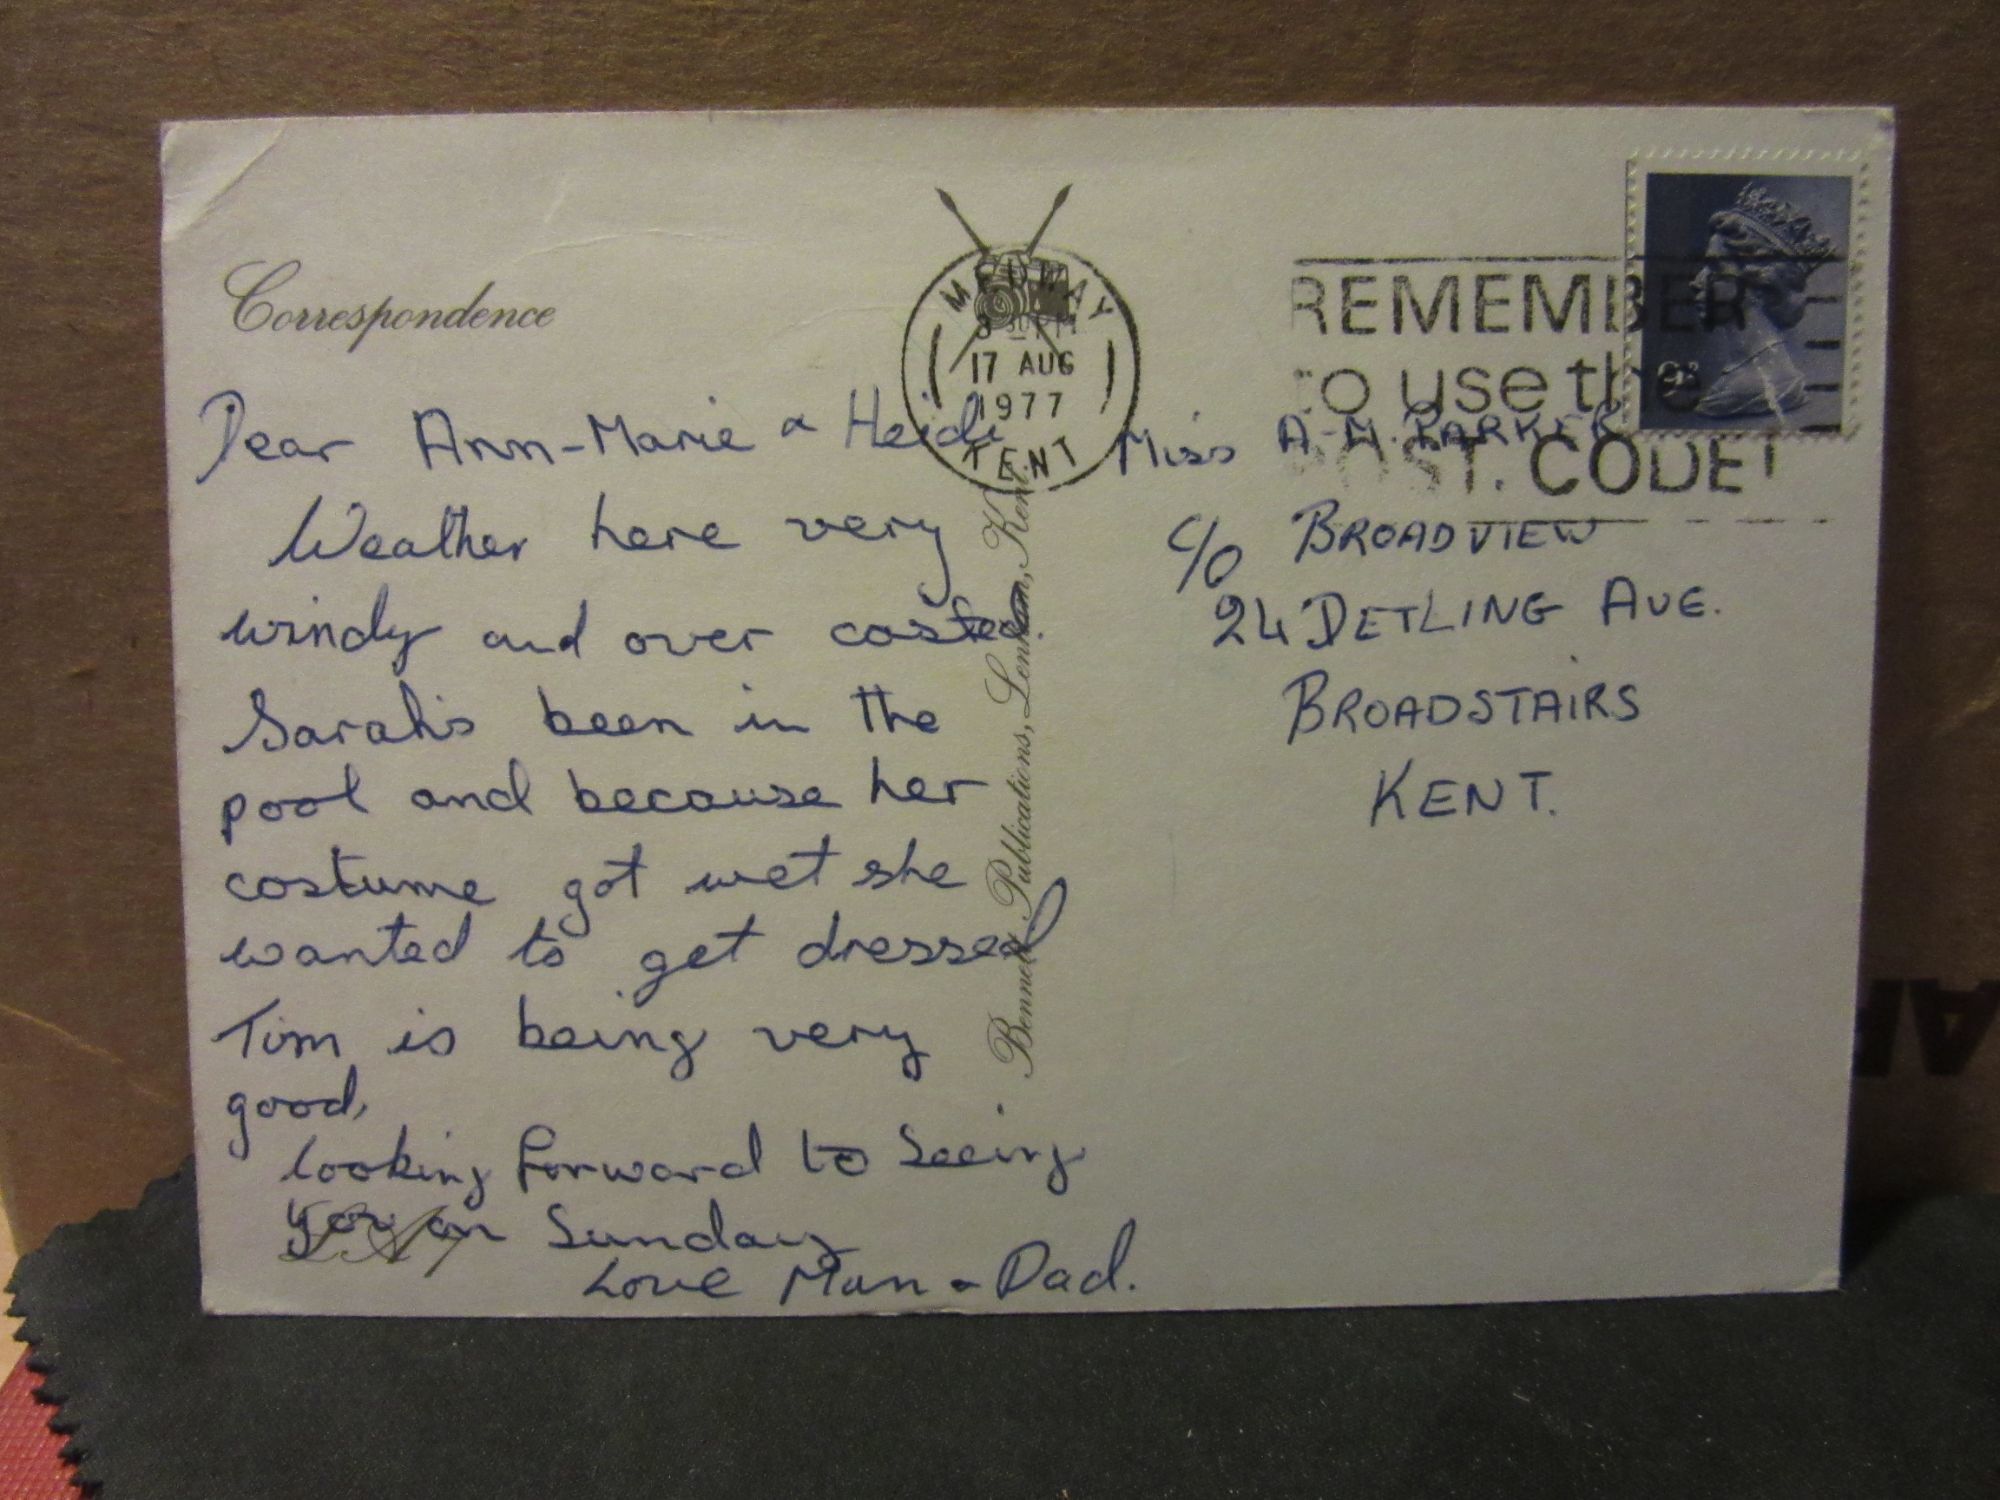 Correspondence
Dear Ann-Marie & Heidi
Weather here very
windy and over casted.
Sarah's been in the
pool and because her
costume got wet she
wanted to get dressed
Tim is being very
good,
looking forward to seeing
you on Sunday
Love Mum & Dad.
MEDWAY
17 AUG
1977
KENT
Bennett Publications, Lenham, Kent.
REMEMBER
to use the
POST CODE!
9P
Miss A-M. PARKER
C/O BROADVIEW
24 DETLING AVE.
BROADSTAIRS
KENT.